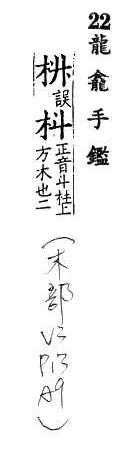 22 龍龕手鑑
枡誤枓正音斗柱上方木也二
(木部 V2 P13 A9)